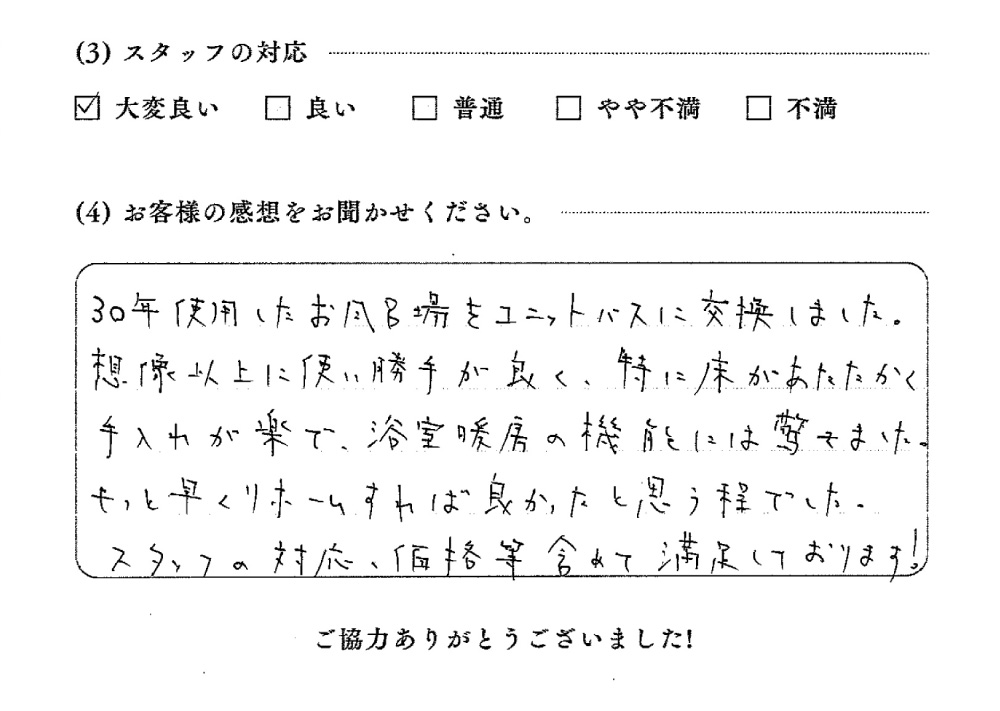 (3) スタッフの対応
☑ 大変良い □ 良い □ 普通 □ やや不満 □ 不満
(4) お客様の感想をお聞かせください。
30年使用したお風呂場をユニットバスに交換しました。
想像以上に使い勝手が良く、特に床があたたかく
手入れが楽で、浴室暖房の機能には驚きました。
もっと早くリホームすれば良かったと思う程でした。
スタッフの対応、価格等含めて満足しております!
ご協力ありがとうございました!